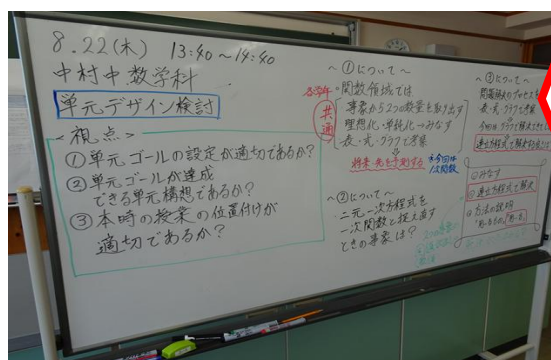 8.22(木) 13:40～14:40
中村中数学科
単元デザイン検討
＜視点＞
①単元ゴールの設定が適切であるか?
②単元ゴールが達成
できる単元構想であるか?
③本時の授業の位置付けが
適切であるか?
～①について～
各学年
共通
・関数領域では
事象から2つの数量を取り出す
理想化・単純化→みなす
表・式・グラフで考察
将来・先を予測する
※今回は
1次関数
～②について～
・二元一次方程式を
一次関数と捉え直す
ときの事象は?
2つの事象
～③について～
問題解決のプロセスを
表・式・グラフで考察
今回はグラフで解決
連立方程式で解決
①みなす
②連立方程式で解決
方法の説明